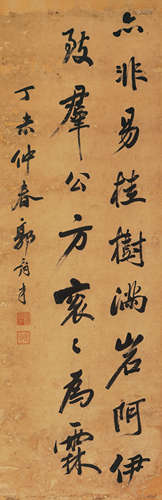 亦非易桂樹滿岩阿伊
致羣公方衮〻為霖
丁未仲春郭尚